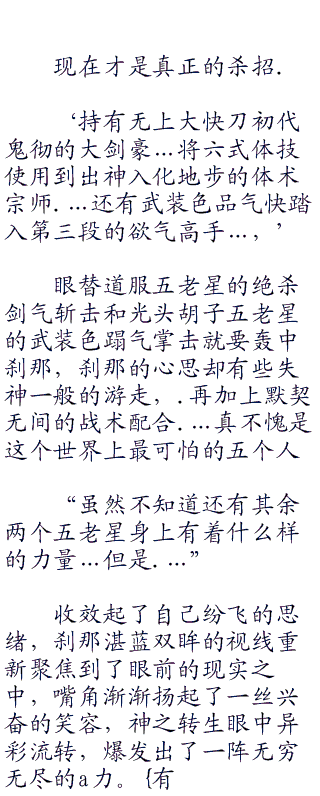 现在才是真正的杀招.
‘持有无上大快刀初代
鬼彻的大剑豪…将六式体技
使用到出神入化地步的体术
宗师.…还有武装色品气快踏
入第三段的欲气高手…，’
眼替道服五老星的绝杀
剑气斩击和光头胡子五老星
的武装色蹋气掌击就要轰中
刹那，刹那的心思却有些失
神一般的游走，.再加上默契
无间的战术配合.…真不愧是
这个世界上最可怕的五个人
“虽然不知道还有其余
两个五老星身上有着什么样
的力量…但是.…”
收效起了自己纷飞的思
绪，刹那湛蓝双眸的视线重
新聚焦到了眼前的现实之
中，嘴角渐渐扬起了一丝兴
奋的笑容，神之转生眼中异
彩流转，爆发出了一阵无穷
无尽的a力。{有